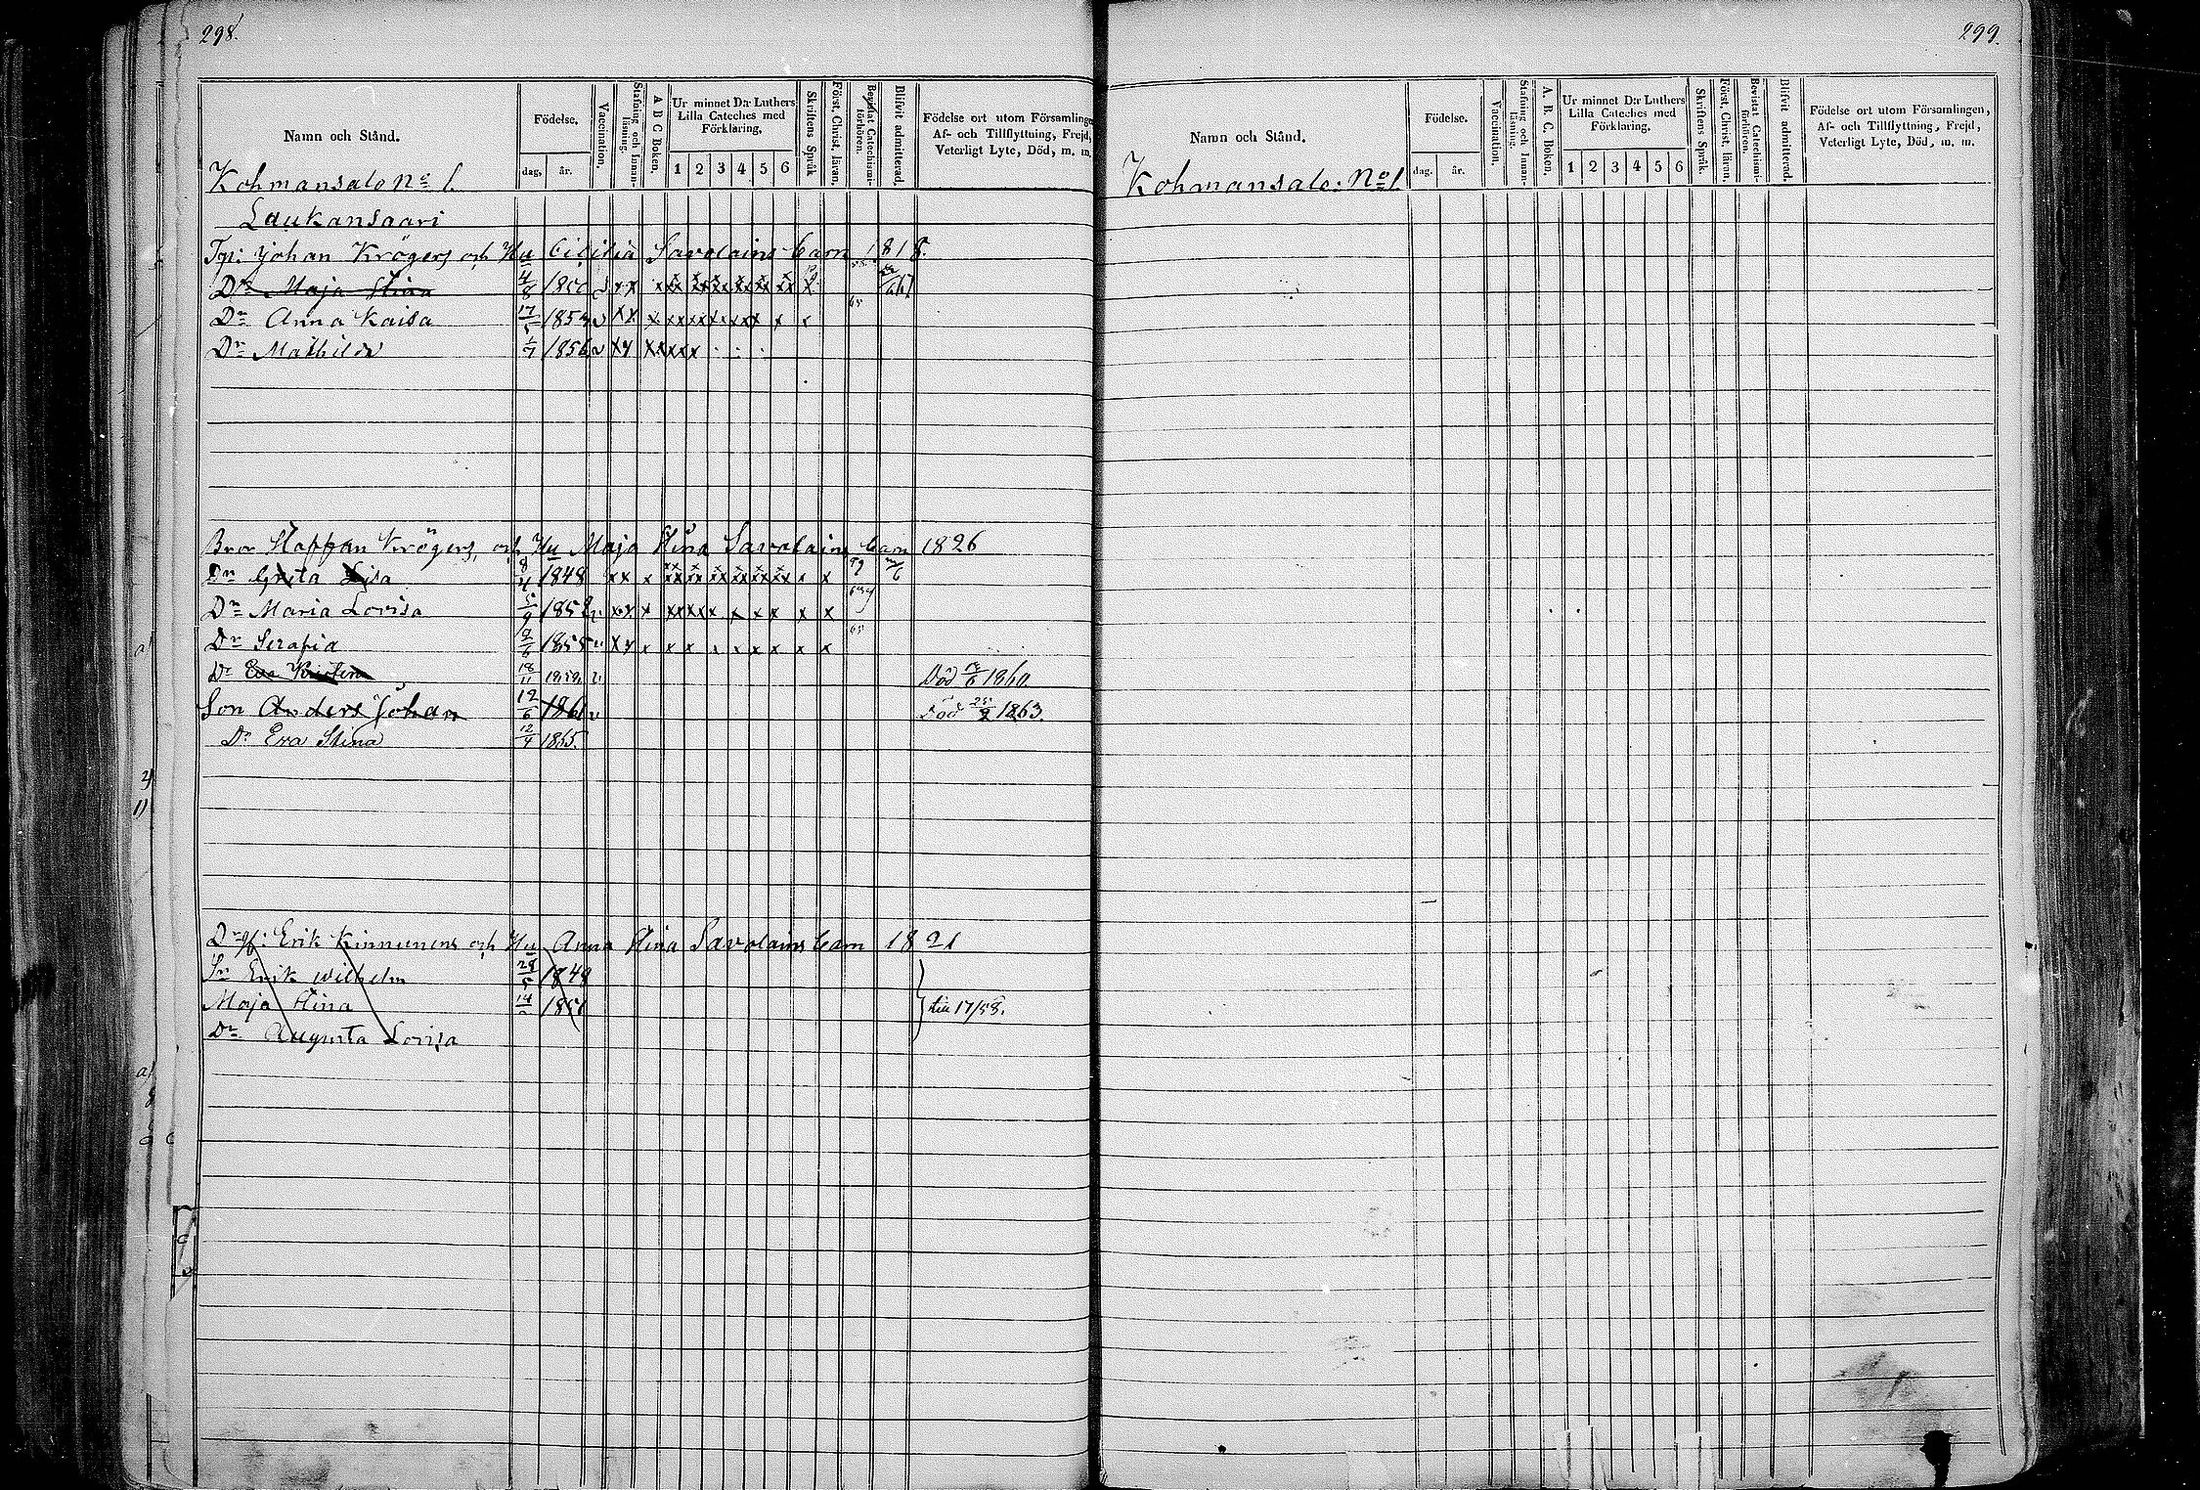 298.
Namn och Stånd.
Födelse.
dag, år.
Vaccination,
Stafning och Innan-läsning.
A B C Boken,
Ur minnet D:r Luthers Lilla Cateches med Förklaring,
1 2 3 4 5 6
Skriftens Språk
Först. Christ. läran,
Bevistat Catechismi-förhören.
Blifvit admitterad.
Födelse ort utom Församlingen
Af- och Tillflyttning, Frejd,
Veterligt Lyte, Död, m. m.
Kohmansalo No 1.
Laukansaari
Johan Krögers och Hu Savolains barn 1818.
Dr Maja Stina 4/8 1850
Dr Anna Kaisa 17/5 1853
Dr Mathilda 1/7 1856
Bror Staffan Krögers, och Hu Maja Stina Savolains barn 1826
Dr Greta Lisa 8/4 1848
Dr Maria Lovisa 5/9 1852
Dr Serafia 2/6 1855
Dr Eva Kristina 18/11 1858 Död 1860.
Son Anders Johan 12/6 1861 Död 1863.
Dr Eva Stina 12/4 1865.
Erik Kinnunens och Hu Anna Stina Savolains barn 1821
Sn Erik Wilhelm 1848
Maja Stina 14 1851 till 17/58.
Dr Augusta Lovisa
299.
Namn och Stånd.
Födelse.
dag. år.
Vaccination,
Stafning och Innan-läsning.
A. B. C. Boken,
Ur minnet D:r Luthers Lilla Cateches med Förklaring.
1 2 3 4 5 6
Skriftens Språk.
Först, Christ, läran.
Bevistat Catechismi-förhören.
Blifvit admitterad.
Födelse ort utom Församlingen,
Af- och Tillflyttning, Frejd,
Veterligt Lyte, Död, m. m.
Kohmansalo: No 1